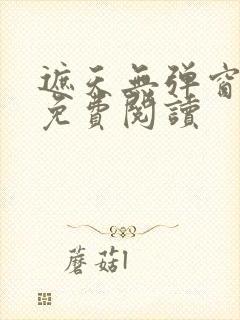 遮天無彈窗
免費閱讀
蘑菇l